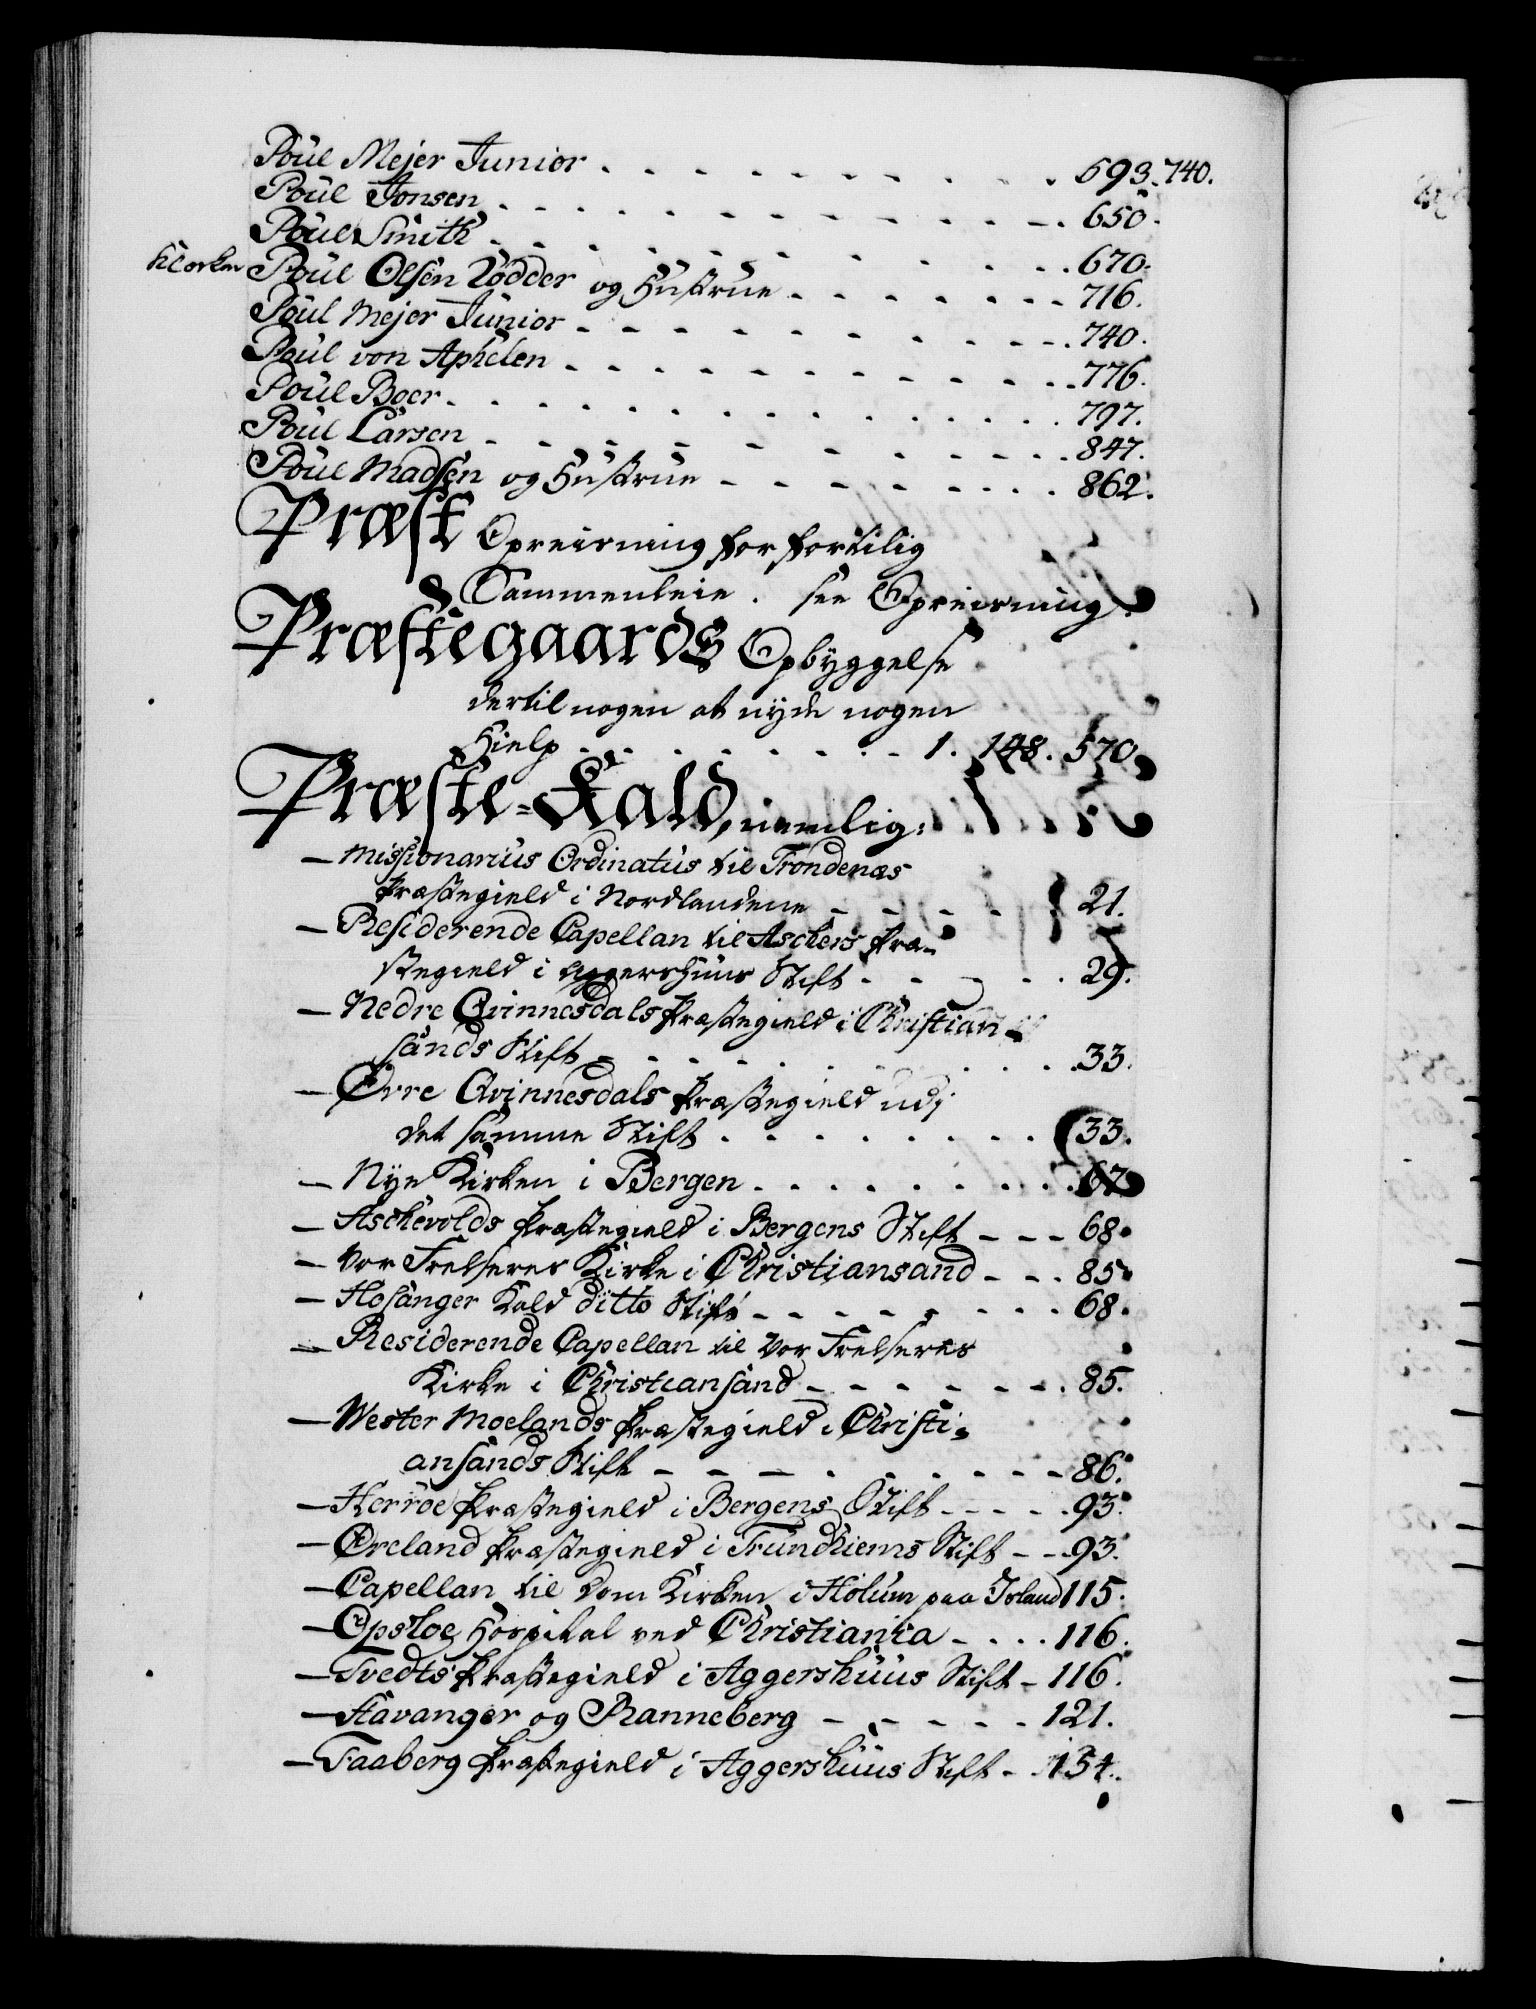 Poül Mejer Junior . . . . . . . . . . . 693. 740.
Poul Jonsen . . . . . . . . . . . . . 650.
Poül Smith . . . . . . . . . . . . 670.
Klocker Poül Olsen Lødder og Hustrue . . . . . . . 716.
Poül Mejer Junior . . . . . . . . . . . 740.
Poul von Aphelen . . . . . . . . . . . 776.
Poül Boer . . . . . . . . . . . . . . 797.
Poül Larsen . . . . . . . . . . . . 847.
Poül Madsen og Hustrue . . . . . . . . 862.
Præst Opreisning for fortilig
Sammenleie. see Opreisning.
Præstegaards Opbyggelse
dertil nogen at nyde nogen
Hielp . . . . . . . . . 1. 148. 570.
Præste-Kald, nemlig:
— Missionarius Ordinatus til Trondenæs
Præstegield i Nordlandene - - - - 21.
— Residerende Capellan til Aschers Præ-
stegield i Aggershuus Stift - - - - 29.
— Nedre Qvinnesdals Præstegield i Christian-
sands Stift - . . . . . . . . . 33.
— Øvre Qvinnesdals Præstegield udj
det samme Stift . . . . . . . . 33.
— Nye Kirken i Bergen . . . . . . . . 67.
— Aschevolds Præstegield i Bergens Stift - - - 68.
— Vor Frelseres Kirke i Christiansand - - . 85.
— Hosanger Kald ditto Stift - - - - - - - - 68.
— Residerende Capellan til Vor Frelseres
Kirke i Christiansand - - - - - - . 85.
— Wester Moelands Præstegield i Christi-
ansands Stift - - - . . . . - - - 86.
— Herröe Præstegield i Bergens Stift - - - - . 93.
— Øreland Præstegield i Trundhiems Stift - - . 93.
— Capellan til Dom Kirken i Holum paa Island 115.
— Opsloe Hospital ved Christiania - . . . 116.
— Tvedts Præstegield i Aggershuus Stift - 116.
— Stavanger og Ranneberg - - - - - . 121.
— Faaberg Præstegield i Aggershuus Stift - . 134.